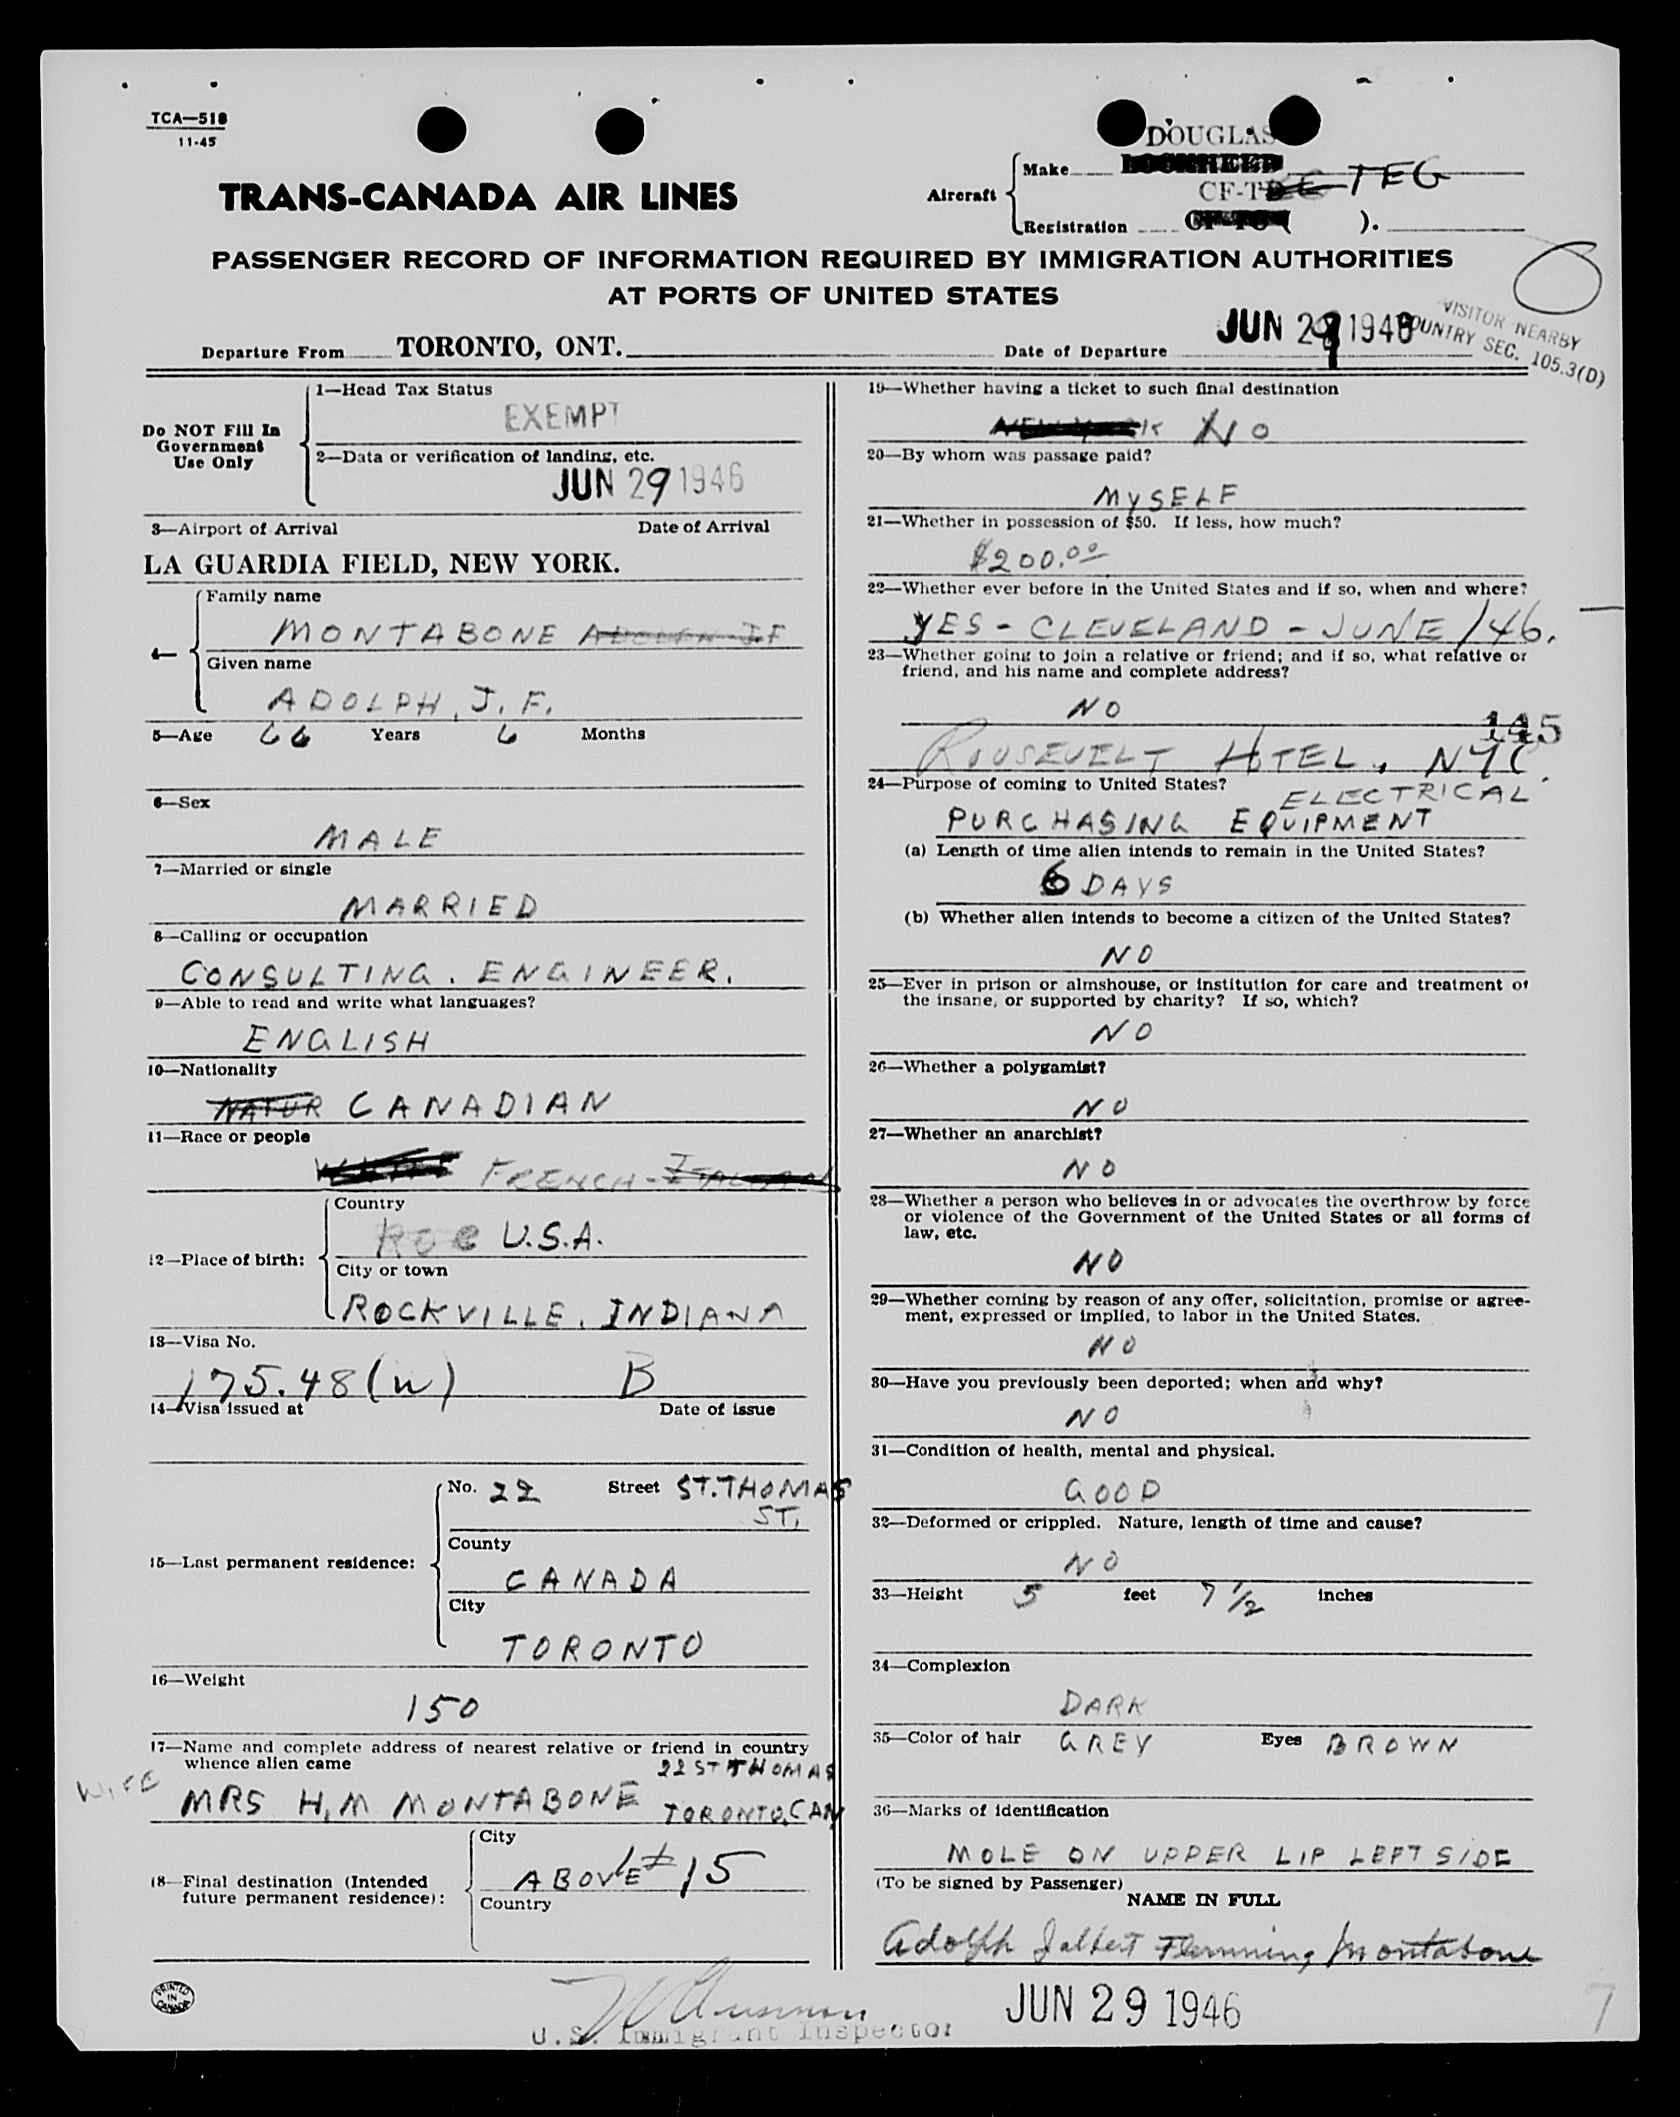 TCA—518
11-45
DOUGLAS
TRANS-CANADA AIR LINES
Aircraft
Make
CF-T TEG
Registration ).
PASSENGER RECORD OF INFORMATION REQUIRED BY IMMIGRATION AUTHORITIES
AT PORTS OF UNITED STATES
VISITOR NEARBY
COUNTRY SEC. 105.3(D)
Departure From TORONTO, ONT. Date of Departure JUN 29 1946
Do NOT Fill In
Government
Use Only
1—Head Tax Status
EXEMPT
2—Data or verification of landing, etc.
JUN 29 1946
3—Airport of Arrival Date of Arrival
LA GUARDIA FIELD, NEW YORK.
4—
Family name
MONTABONE ADOLPH JF
Given name
ADOLPH. J. F.
5—Age 66 Years 6 Months
6—Sex
MALE
7—Married or single
MARRIED
8—Calling or occupation
CONSULTING. ENGINEER.
9—Able to read and write what languages?
ENGLISH
10—Nationality
NATUR CANADIAN
11—Race or people
WHITE FRENCH-ITALIAN
12—Place of birth:
Country
U.S.A.
City or town
ROCKVILLE. INDIANA
13—Visa No.
175.48(w) B
14—Visa issued at Date of issue
15—Last permanent residence:
No. 22 Street ST. THOMAS
ST.
County
CANADA
City
TORONTO
16—Weight
150
17—Name and complete address of nearest relative or friend in country
whence alien came
22 ST THOMAS
WIFE
MRS H.M MONTABONE TORONTO, CAN
18—Final destination (Intended
future permanent residence):
City
ABOVE # 15
Country
PRINTED
IN
CANADA
19—Whether having a ticket to such final destination
NEW YORK NO
20—By whom was passage paid?
MYSELF
21—Whether in possession of $50. If less, how much?
$200.00
22—Whether ever before in the United States and if so, when and where?
YES - CLEVELAND - JUNE /46.
23—Whether going to join a relative or friend; and if so, what relative or
friend, and his name and complete address?
NO
145
ROOSEVELT HOTEL. NYC.
24—Purpose of coming to United States?
ELECTRICAL
PURCHASING EQUIPMENT
(a) Length of time alien intends to remain in the United States?
6 DAYS
(b) Whether alien intends to become a citizen of the United States?
NO
25—Ever in prison or almshouse, or institution for care and treatment of
the insane, or supported by charity? If so, which?
NO
26—Whether a polygamist?
NO
27—Whether an anarchist?
NO
28—Whether a person who believes in or advocates the overthrow by force
or violence of the Government of the United States or all forms of
law, etc.
NO
29—Whether coming by reason of any offer, solicitation, promise or agree-
ment, expressed or implied, to labor in the United States.
NO
30—Have you previously been deported; when and why?
NO
31—Condition of health, mental and physical.
GOOD
32—Deformed or crippled. Nature, length of time and cause?
NO
33—Height 5 feet 7 1/2 inches
34—Complexion
DARK
35—Color of hair GREY Eyes BROWN
36—Marks of identification
MOLE ON UPPER LIP LEFT SIDE
(To be signed by Passenger)
NAME IN FULL
Adolph Jalbert Flemming Montabone
U.S. Immigrant Inspector
JUN 29 1946
7